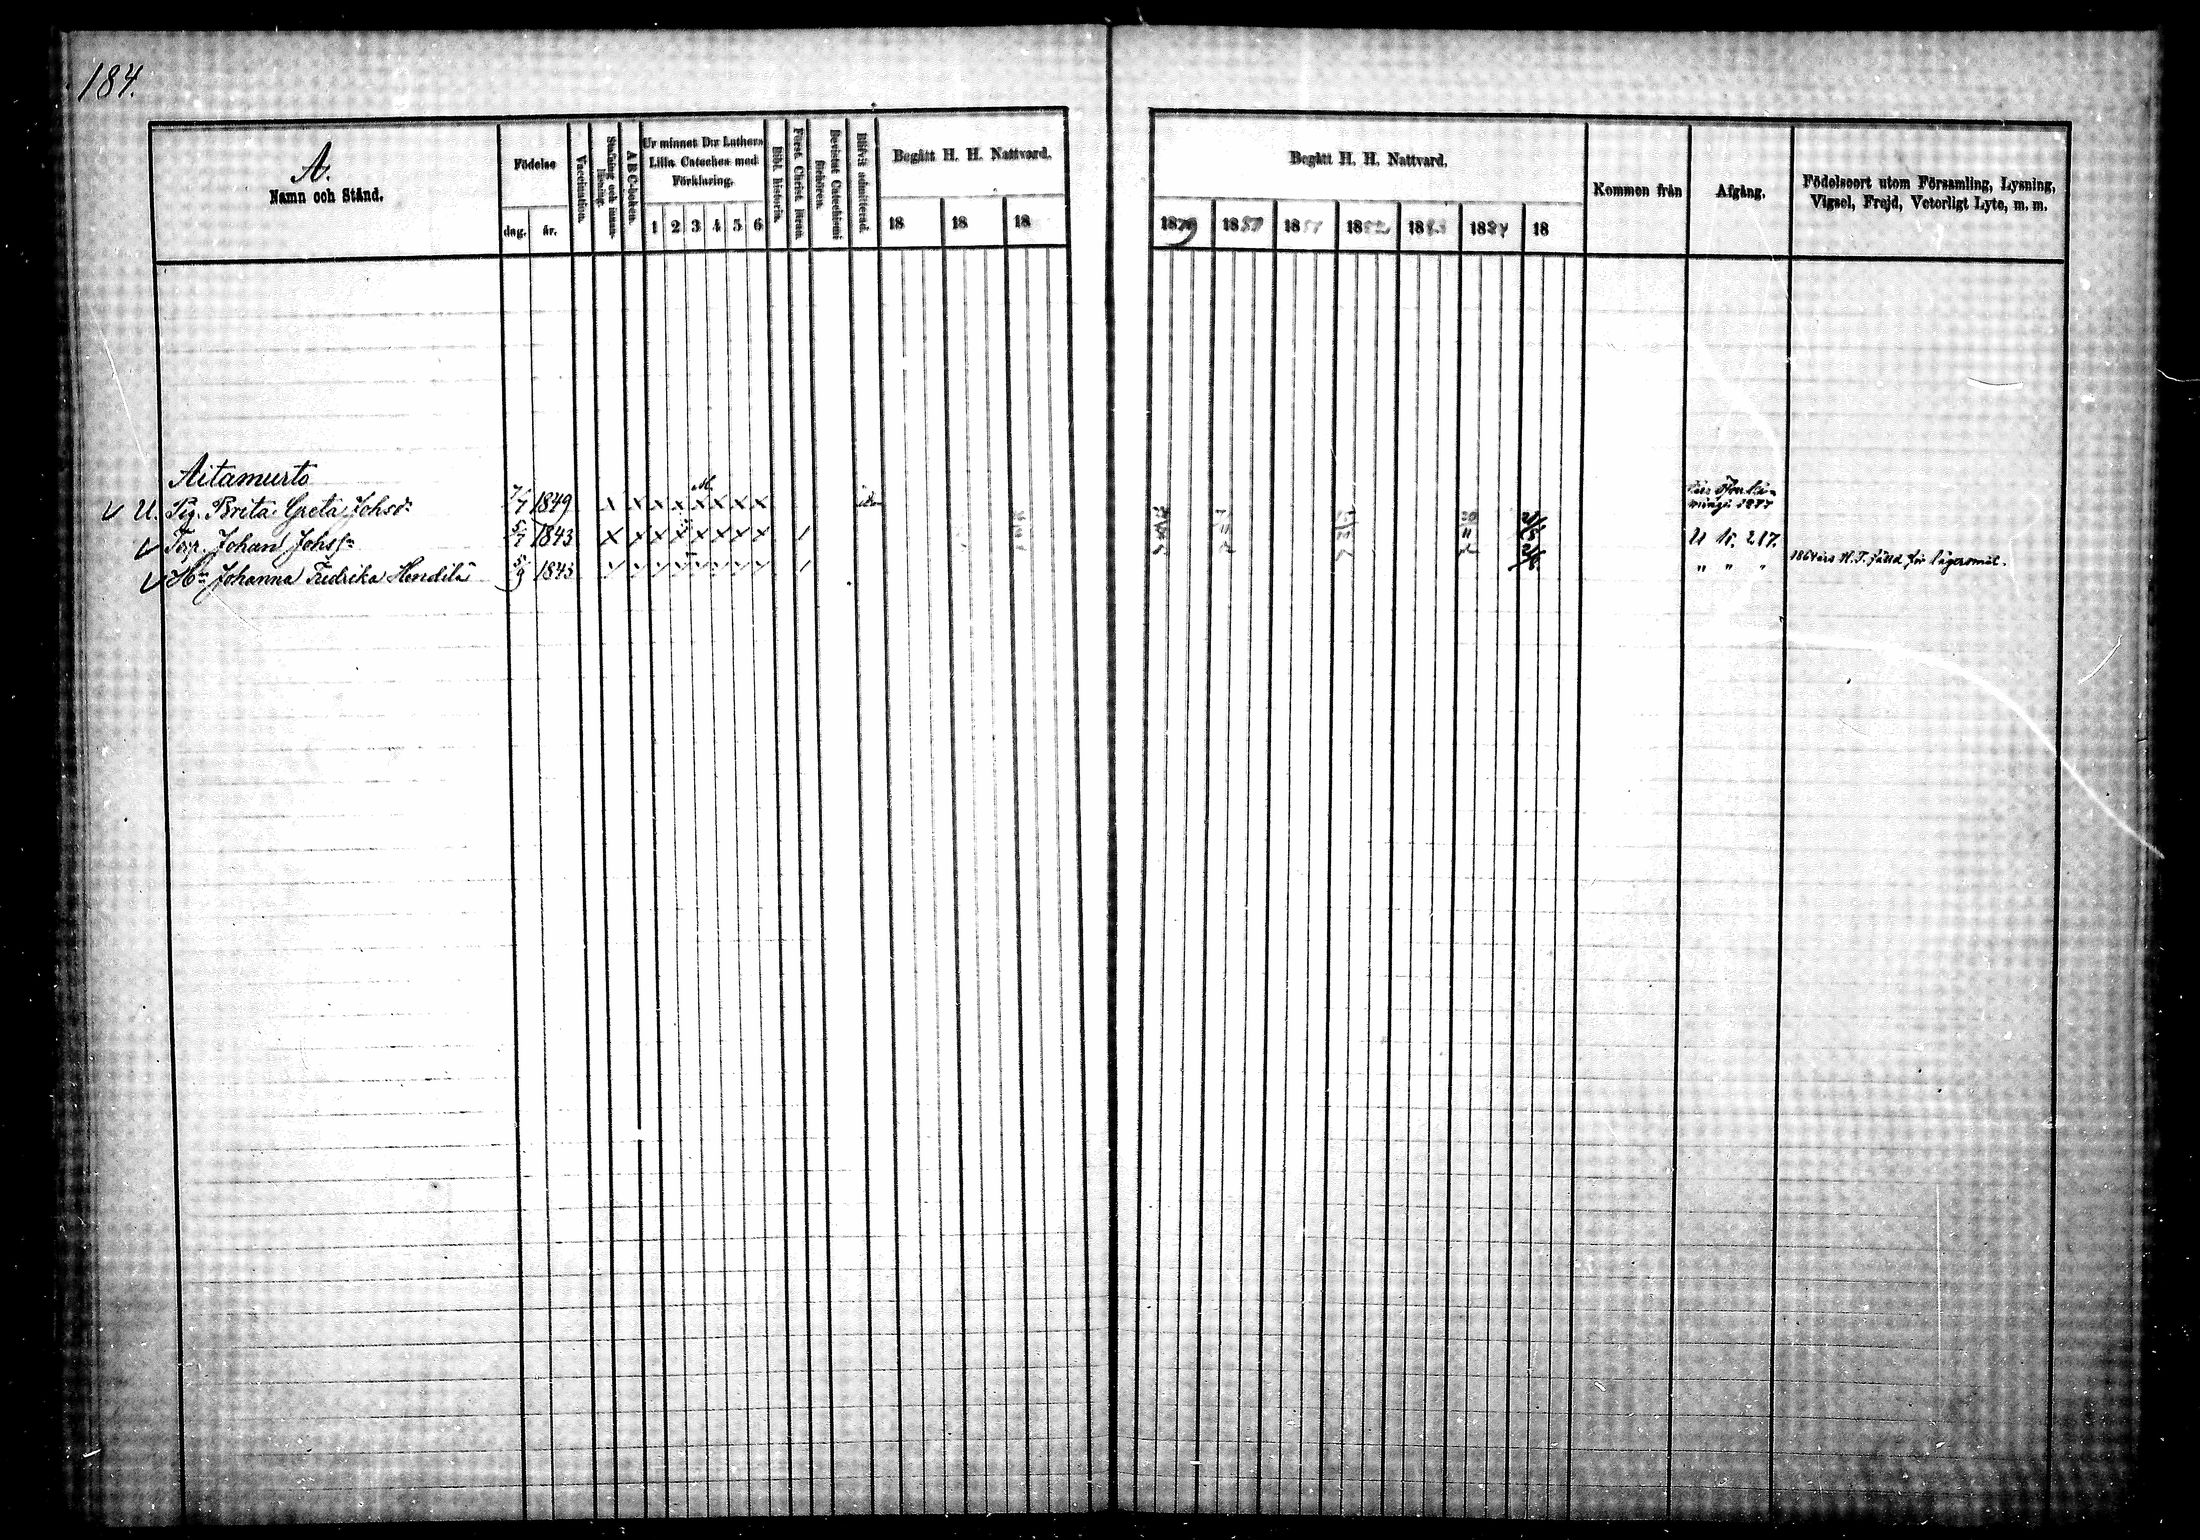 184.
A.
Namn och Stånd.
Födelse
dag. år.
Vaccination.
Stafning och innanläsning.
A B C-boken.
Ur minnet D:r Luthers
Lilla Cateches med
Förklaring.
1 2 3 4 5 6
Bibl. historia.
Först. Christ. lifvan
Bevistat Catechismi
förhören.
Blifvit admitterad.
Begått H. H. Nattvard.
18 18 18
Begått H. H. Nattvard.
1879 188 188 1882 188 1884 18
Kommen från
Afgång.
Födelseort utom Församling, Lysning,
Vigsel, Frejd, Veterligt Lyte, m. m.
Aitamurto
U. Pig. Brita Greta Johsd:r 1849
Torp. Johan Johss:n 5/7 1843 U K. 217.
H:u Johanna Fredrika Hendilä 5/9 1843 " " " H. T. fälld för lägersmål.